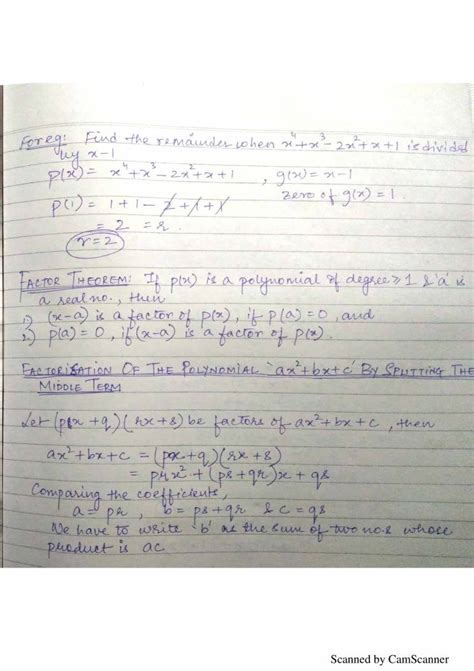 For eg: Find the remainder when x⁴+x³-2x²+x+1 is divided
by x-1
p(x) = x⁴+x³-2x²+x+1 , g(x) = x-1
zero of g(x) = 1.
p(1) = 1+1-2+1+1
= 2 = r.
r=2
FACTOR THEOREM: If p(x) is a polynomial of degree ≥ 1 & 'a' is
a real no., then
1) (x-a) is a factor of p(x), if p(a) = 0, and
2) p(a) = 0, if (x-a) is a factor of p(x).
FACTORISATION OF THE POLYNOMIAL 'ax²+bx+c' BY SPLITTING THE
MIDDLE TERM
Let (px+q)(rx+s) be factors of ax²+bx+c, then
ax²+bx+c = (px+q)(rx+s)
= prx² + (ps+qr)x + qs
Comparing the coefficients,
a = pr, b = ps+qr & c = qs
We have to write 'b' as the sum of two no.s whose
product is ac
Scanned by CamScanner